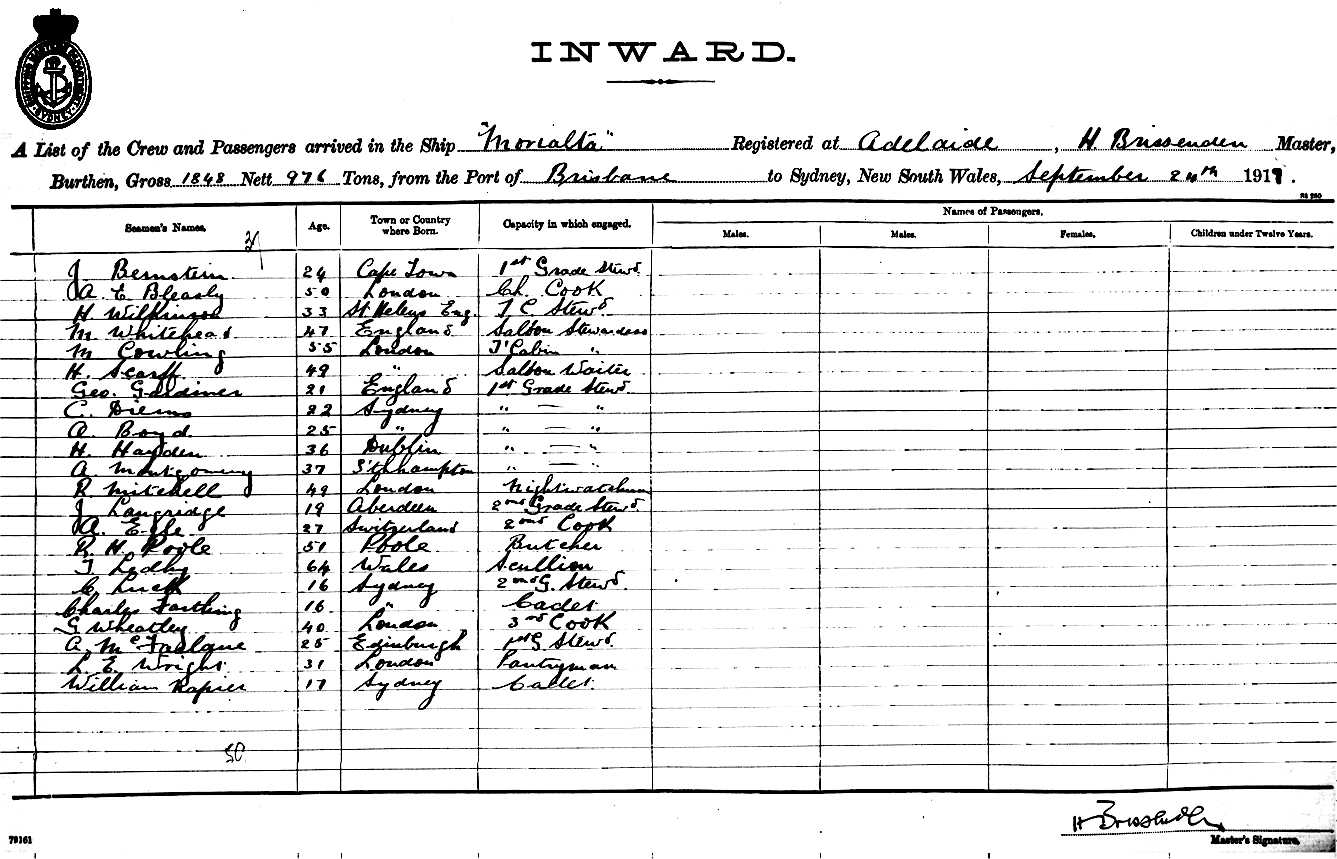 SHIPPING MASTER'S DEPARTMENT SYDNEY
INWARD.
A List of the Crew and Passengers arrived in the Ship "Morialta" Registered at Adelaide, H. Brissenden Master,
Burthen, Gross 1848 Nett 976 Tons, from the Port of Brisbane to Sydney, New South Wales, September 24th 1917.
Seamen's Names. Age. Town or Country where Born. Capacity in which engaged. Names of Passengers.
Males. Males. Females. Children under Twelve Years.
J Bernstein 24 Cape Town 1st Grade Stewd.
A. E Bleasly 50 London Ch. Cook
H Wilkinson 33 St Helens Eng. T C. Stewd.
M Whitehead 47 England Saloon Stewardess
M Cowling 55 London T'Cabin "
H. Scarff 49 " Saloon Waiter
Geo. Gardiner 21 England 1st Grade Stewd.
C. Diems 22 Sydney " — "
A. Boyd 25 " " — "
H. Hayden 36 Dublin " — "
A. Montgomery 37 S'thhampton " — "
R Mitchell 49 London Nightwatchman
J Langridge 19 Aberdeen 2nd Grade Stewd.
A. 27 Switzerland 2nd Cook
R H. Poole 51 Poole Butcher
T Ledby 64 Wales Scullion
C. 16 Sydney 2nd G. Stewd.
Charles Farthing 16 " Cadet
G Wheatley 40 London 3rd Cook
A. McFarlane 25 Edinburgh 1st G Stewd.
L. E. Wright 31 London Pantryman
William Rapier 17 Sydney Cadet.
50
H Brissenden
79161 Master's Signature.